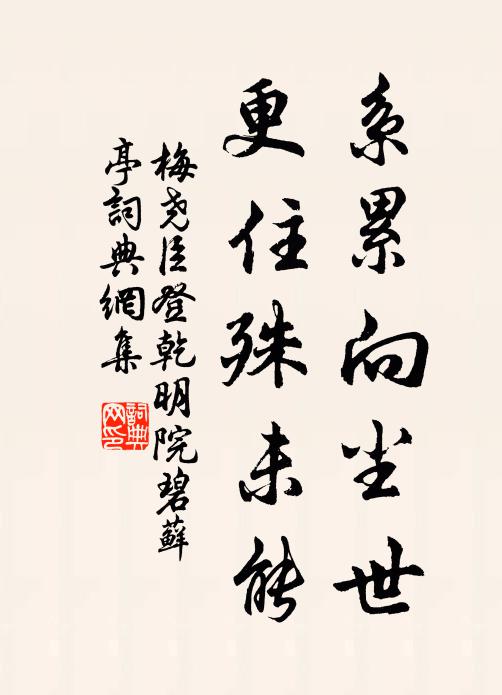 系累向尘世
更住殊未能
梅尧臣登乾明院碧藓
亭詞典網集
詞典
网印